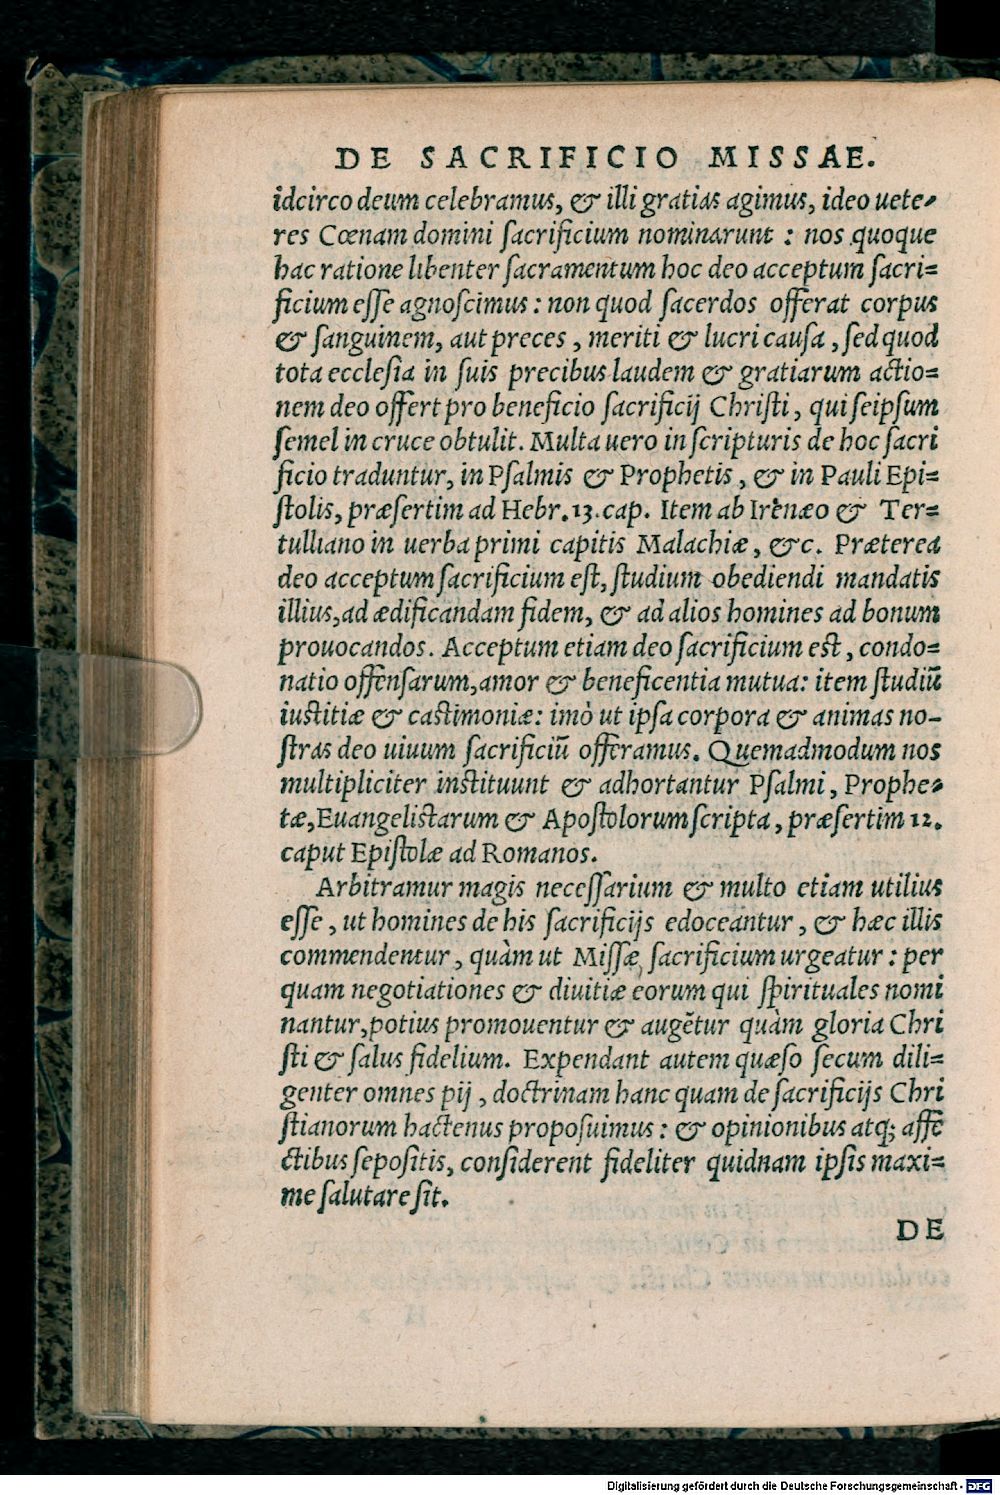 DE SACRIFICIO MISSAE.
idcirco deum celebramus, & illi gratias agimus, ideo uete-
res Cœnam domini ſacrificium nominarunt : nos quoque
hac ratione libenter ſacramentum hoc deo acceptum ſacri=
ficium eſſe agnoſcimus : non quod ſacerdos offerat corpus
& ſanguinem, aut preces, meriti & lucri cauſa, ſed quod
tota eccleſia in ſuis precibus laudem & gratiarum actio=
nem deo offert pro beneficio ſacrificij Chriſti, qui ſeipſum
ſemel in cruce obtulit. Multa uero in ſcripturis de hoc ſacri
ficio traduntur, in Pſalmis & Prophetis, & in Pauli Epi=
ſtolis, præſertim ad Hebr. 13. cap. Item ab Irènæo & Ter=
tulliano in uerba primi capitis Malachiæ, &c. Præterea
deo acceptum ſacrificium eſt, ſtudium obediendi mandatis
illius, ad ædificandam fidem, & ad alios homines ad bonum
prouocandos. Acceptum etiam deo ſacrificium eſt, condo=
natio offenſarum, amor & beneficentia mutua: item ſtudiū
iuſtitiæ & caſtimoniæ: imò ut ipſa corpora & animas no-
ſtras deo uiuum ſacrificiū offeramus. Quemadmodum nos
multipliciter inſtituunt & adhortantur Pſalmi, Prophe-
tæ, Euangeliſtarum & Apoſtolorum ſcripta, præſertim 12.
caput Epiſtolæ ad Romanos.
Arbitramur magis neceſſarium & multo etiam utilius
eſſe, ut homines de his ſacrificijs edoceantur, & hæc illis
commendentur, quàm ut Miſſæ ſacrificium urgeatur : per
quam negotiationes & diuitiæ eorum qui ſpirituales nomi
nantur, potius promouentur & augētur quàm gloria Chri
ſti & ſalus fidelium. Expendant autem quæſo ſecum dili=
genter omnes pij, doctrinam hanc quam de ſacrificijs Chri
ſtianorum hactenus propoſuimus : & opinionibus atq; affe
ctibus ſepoſitis, conſiderent fideliter quidnam ipſis maxi=
me ſalutare ſit.
DE
Digitalisierung gefördert durch die Deutsche Forschungsgemeinschaft - DFG